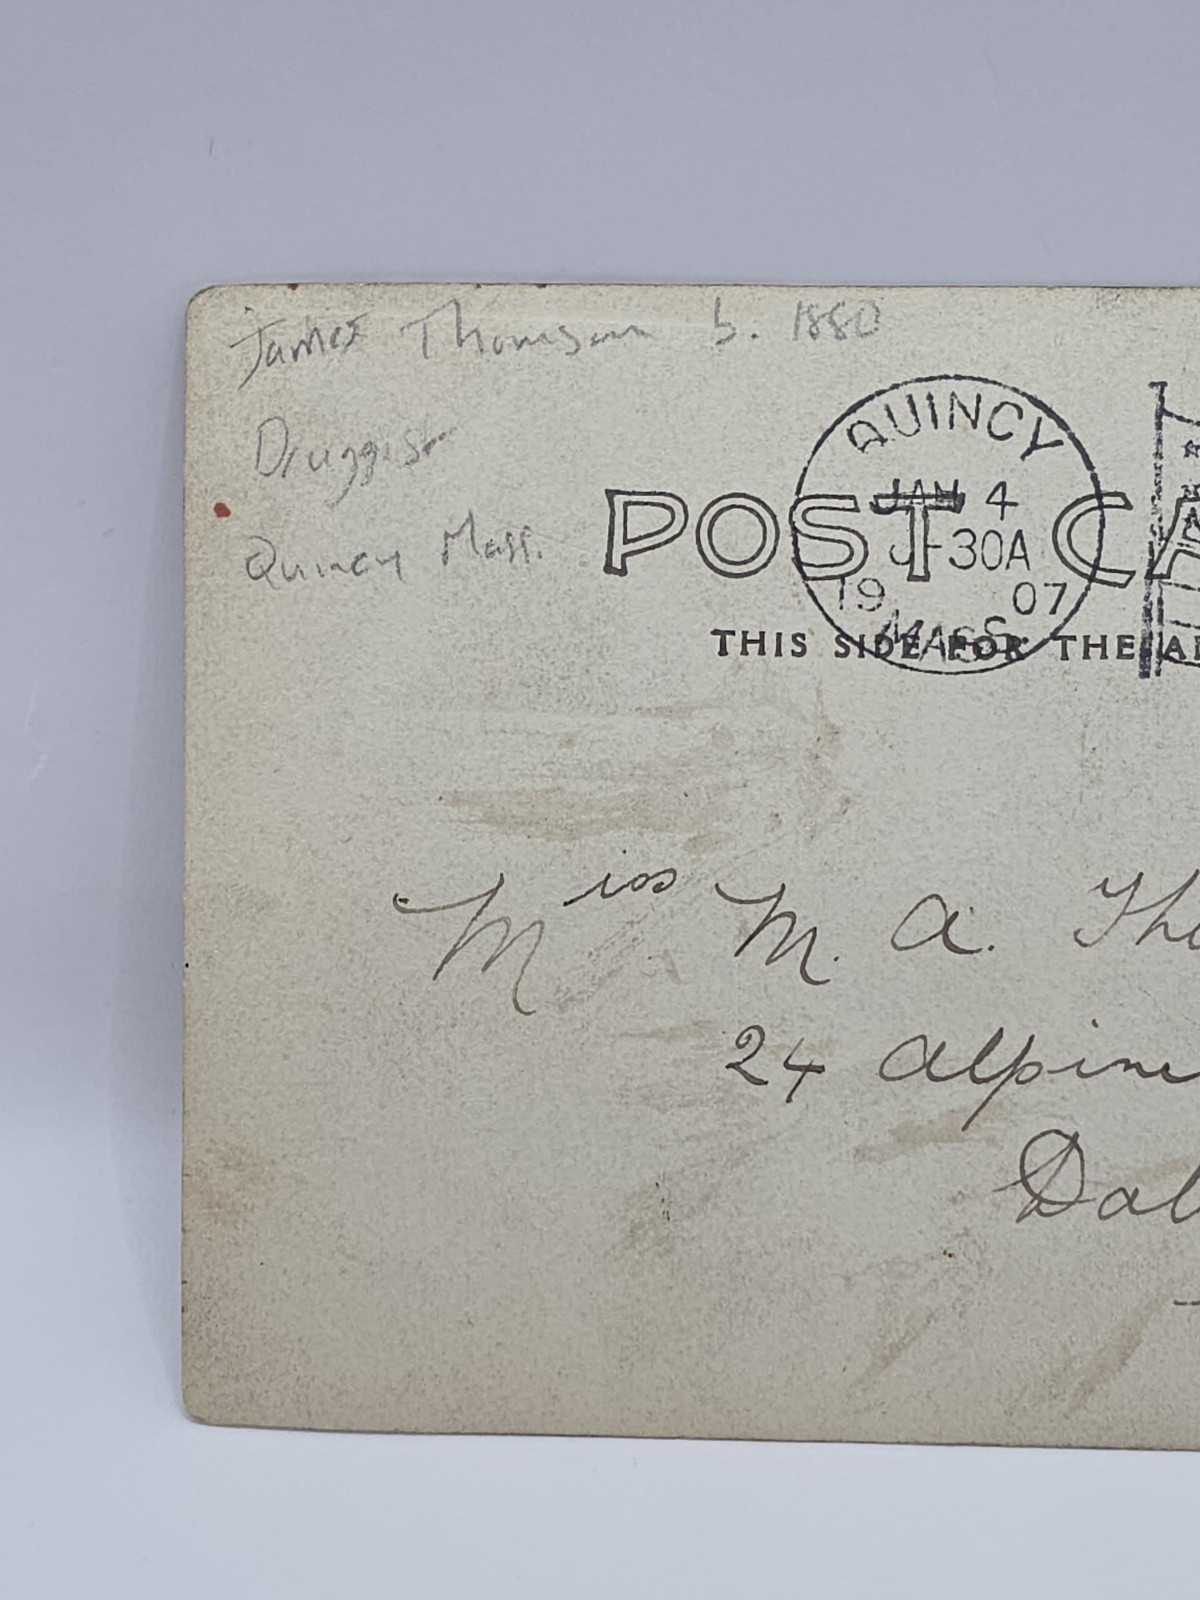 James Thomson b. 1880
Druggist
Quincy Mass.
QUINCY
JAN 4
-30A
19 07
MASS.
POST CA
THIS SIDE FOR THE A
Miss M. A. Tho
24 Alpine
Dal